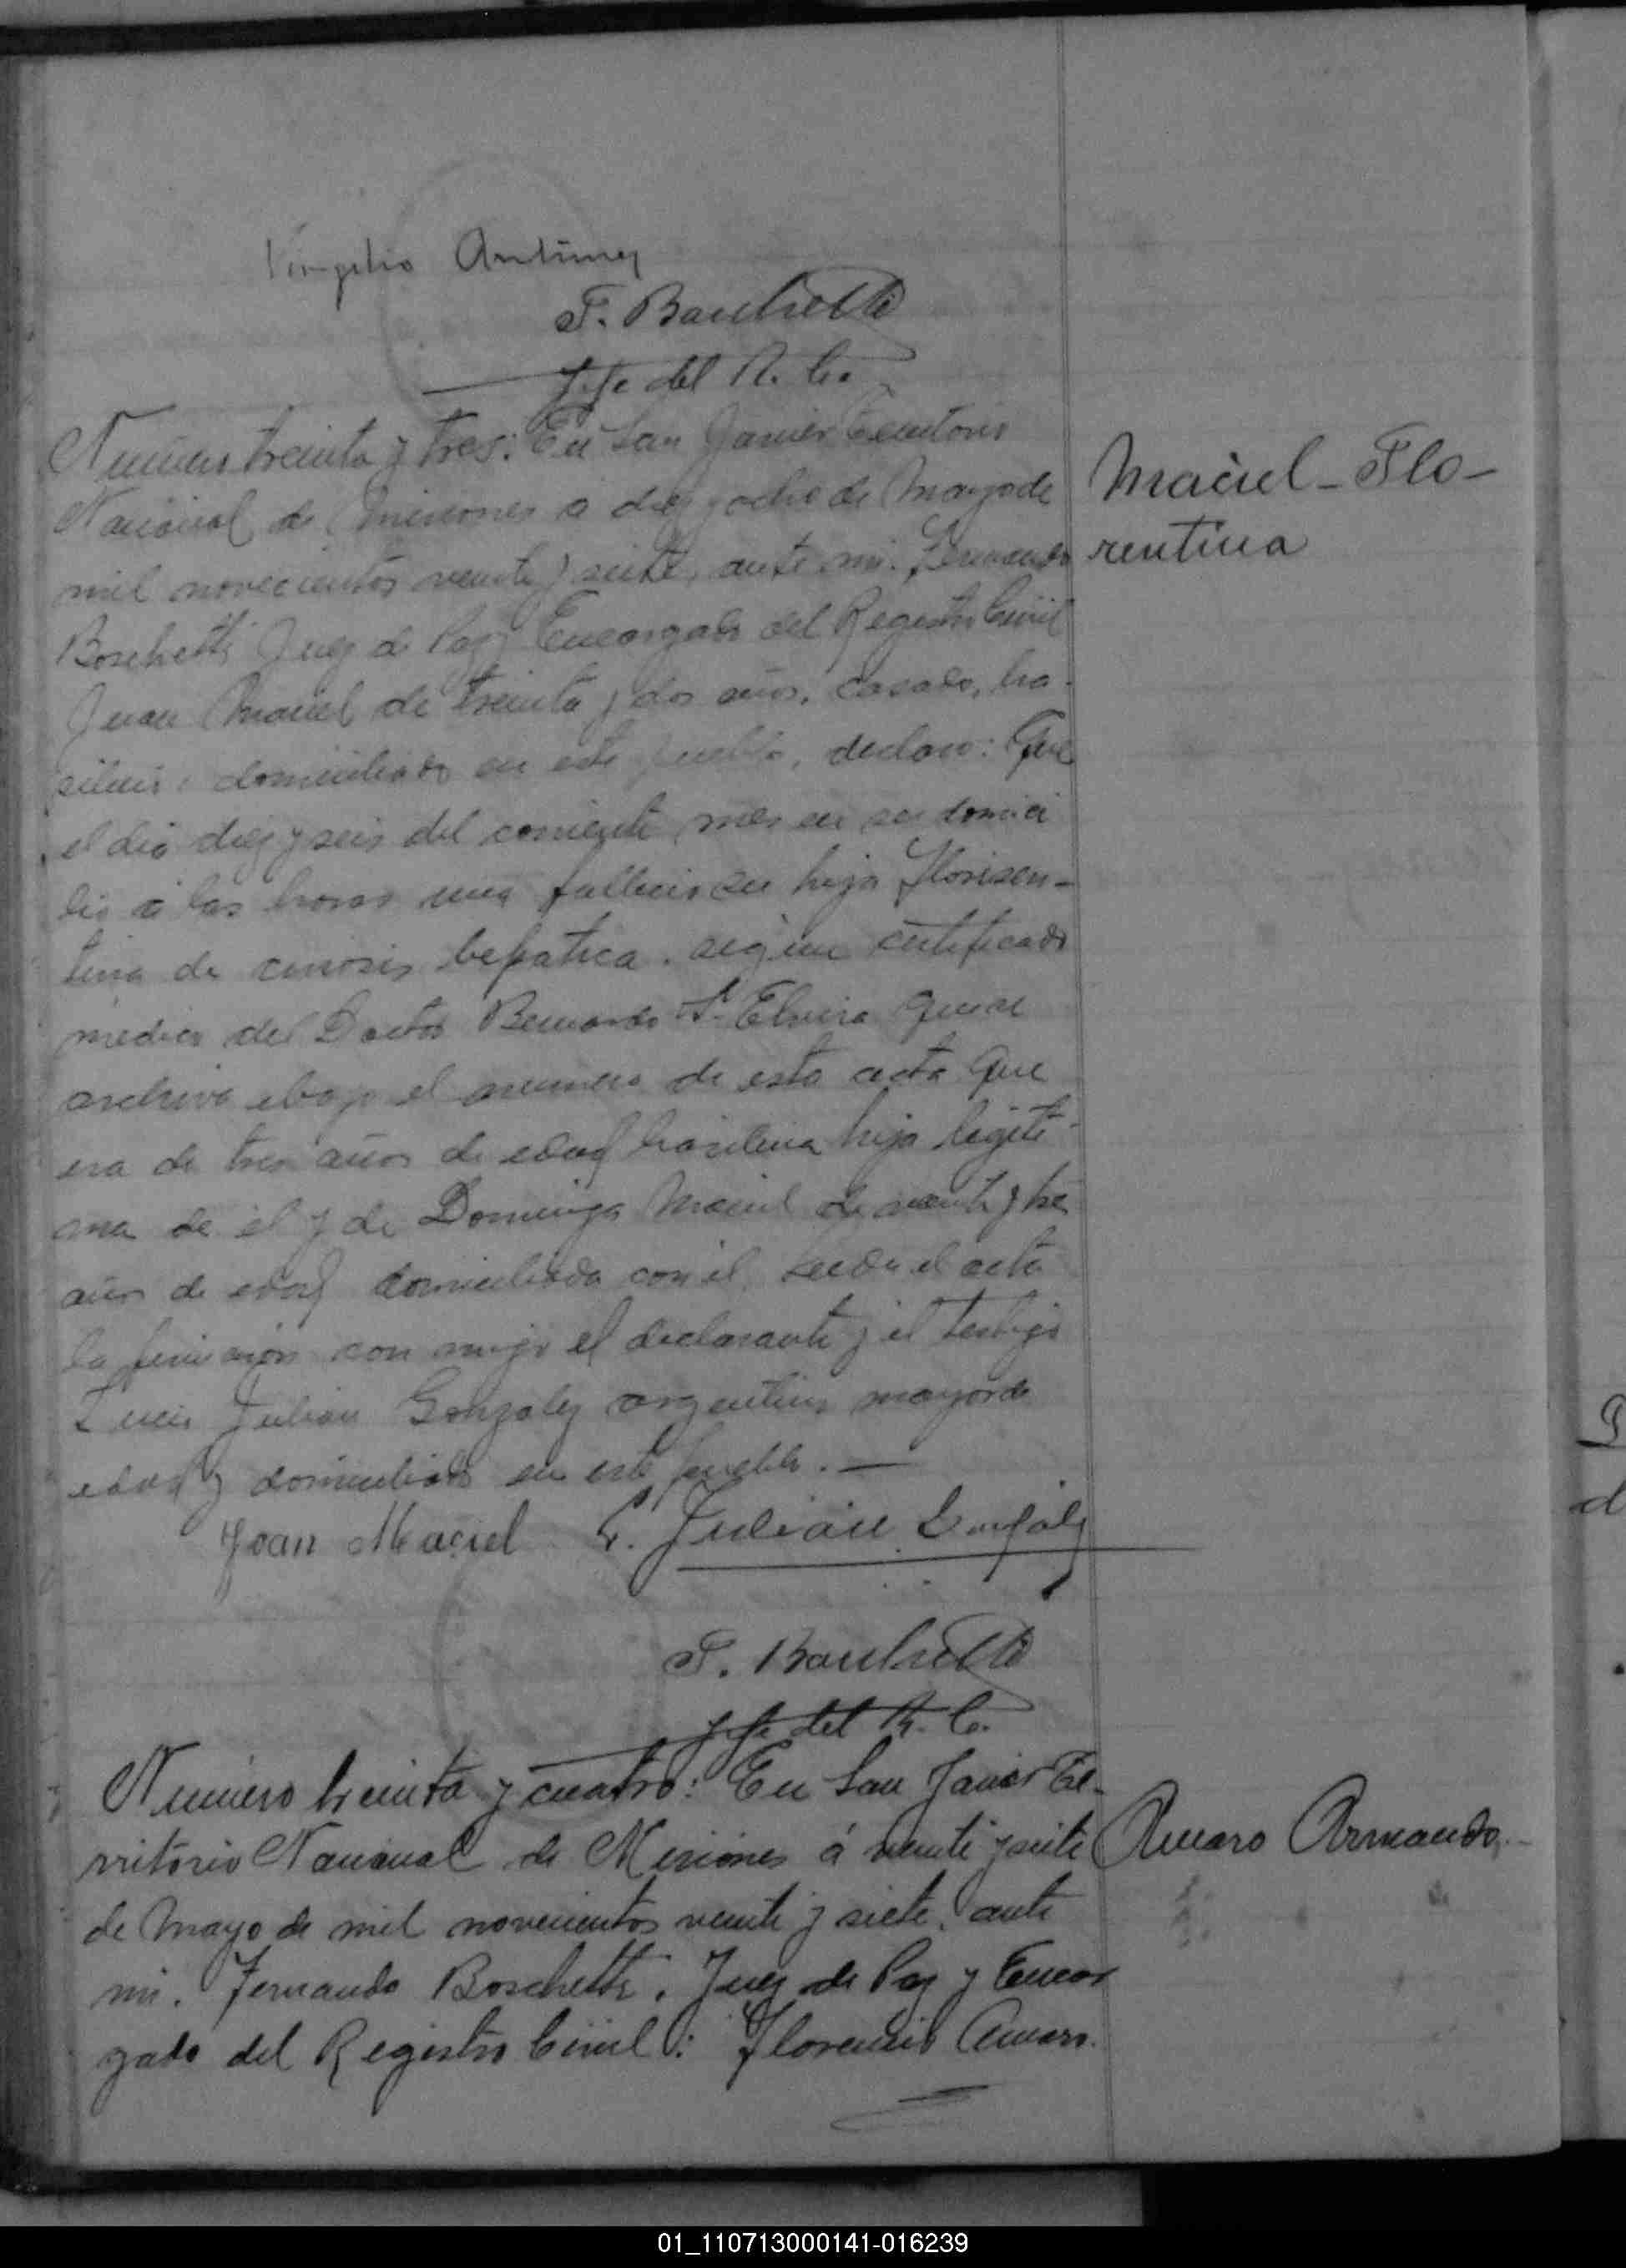 Virgilio Antunez
F. Boschetti
Jefe del R. C.
Numero treinta y tres: En San Javier Territorio
Nacional de Misiones a diez y ocho de Mayo de
mil novecientos veinte y siete, ante mi. Fernando
Boschetti Juez de Paz y Encargado del Registro Civil
Juan Maciel de treinta y dos años, casado, bra-
silero domiciliado en este pueblo, declaro: Que
el dia diez y seis del corriente mes en su domici
lio a las horas una fallecio su hija Florisen-
tina de cirrosis hepatica. segun certificado
medico del Doctor Bernardo S. Elvira que se
archiva bajo el numero de esta acta Que
era de tres años de edad brasilera hija legiti-
ma de el y de Dominga Maciel de veinte y tres
años de edad domiciliada con el. Leida el acta
la firmaron con migo el declarante y el testigo
Luis Julian Gonzalez argentino mayor de
edad y domiciliado en este pueblo. —
Joan Maciel L. Julián Gonzalez
F. Boschetti
Jefe del R. C.
Numero treinta y cuatro: En San Javier Te-
rritorio Nacional de Misiones á veinte y siete
de Mayo de mil novecientos veinte y siete, ante
mi. Fernando Boschetti, Juez de Paz y Encar
gado del Registro Civil: Florencio Amaro.
Maciel - Flo-
rentina
Amaro Armando.
01_110713000141-016239